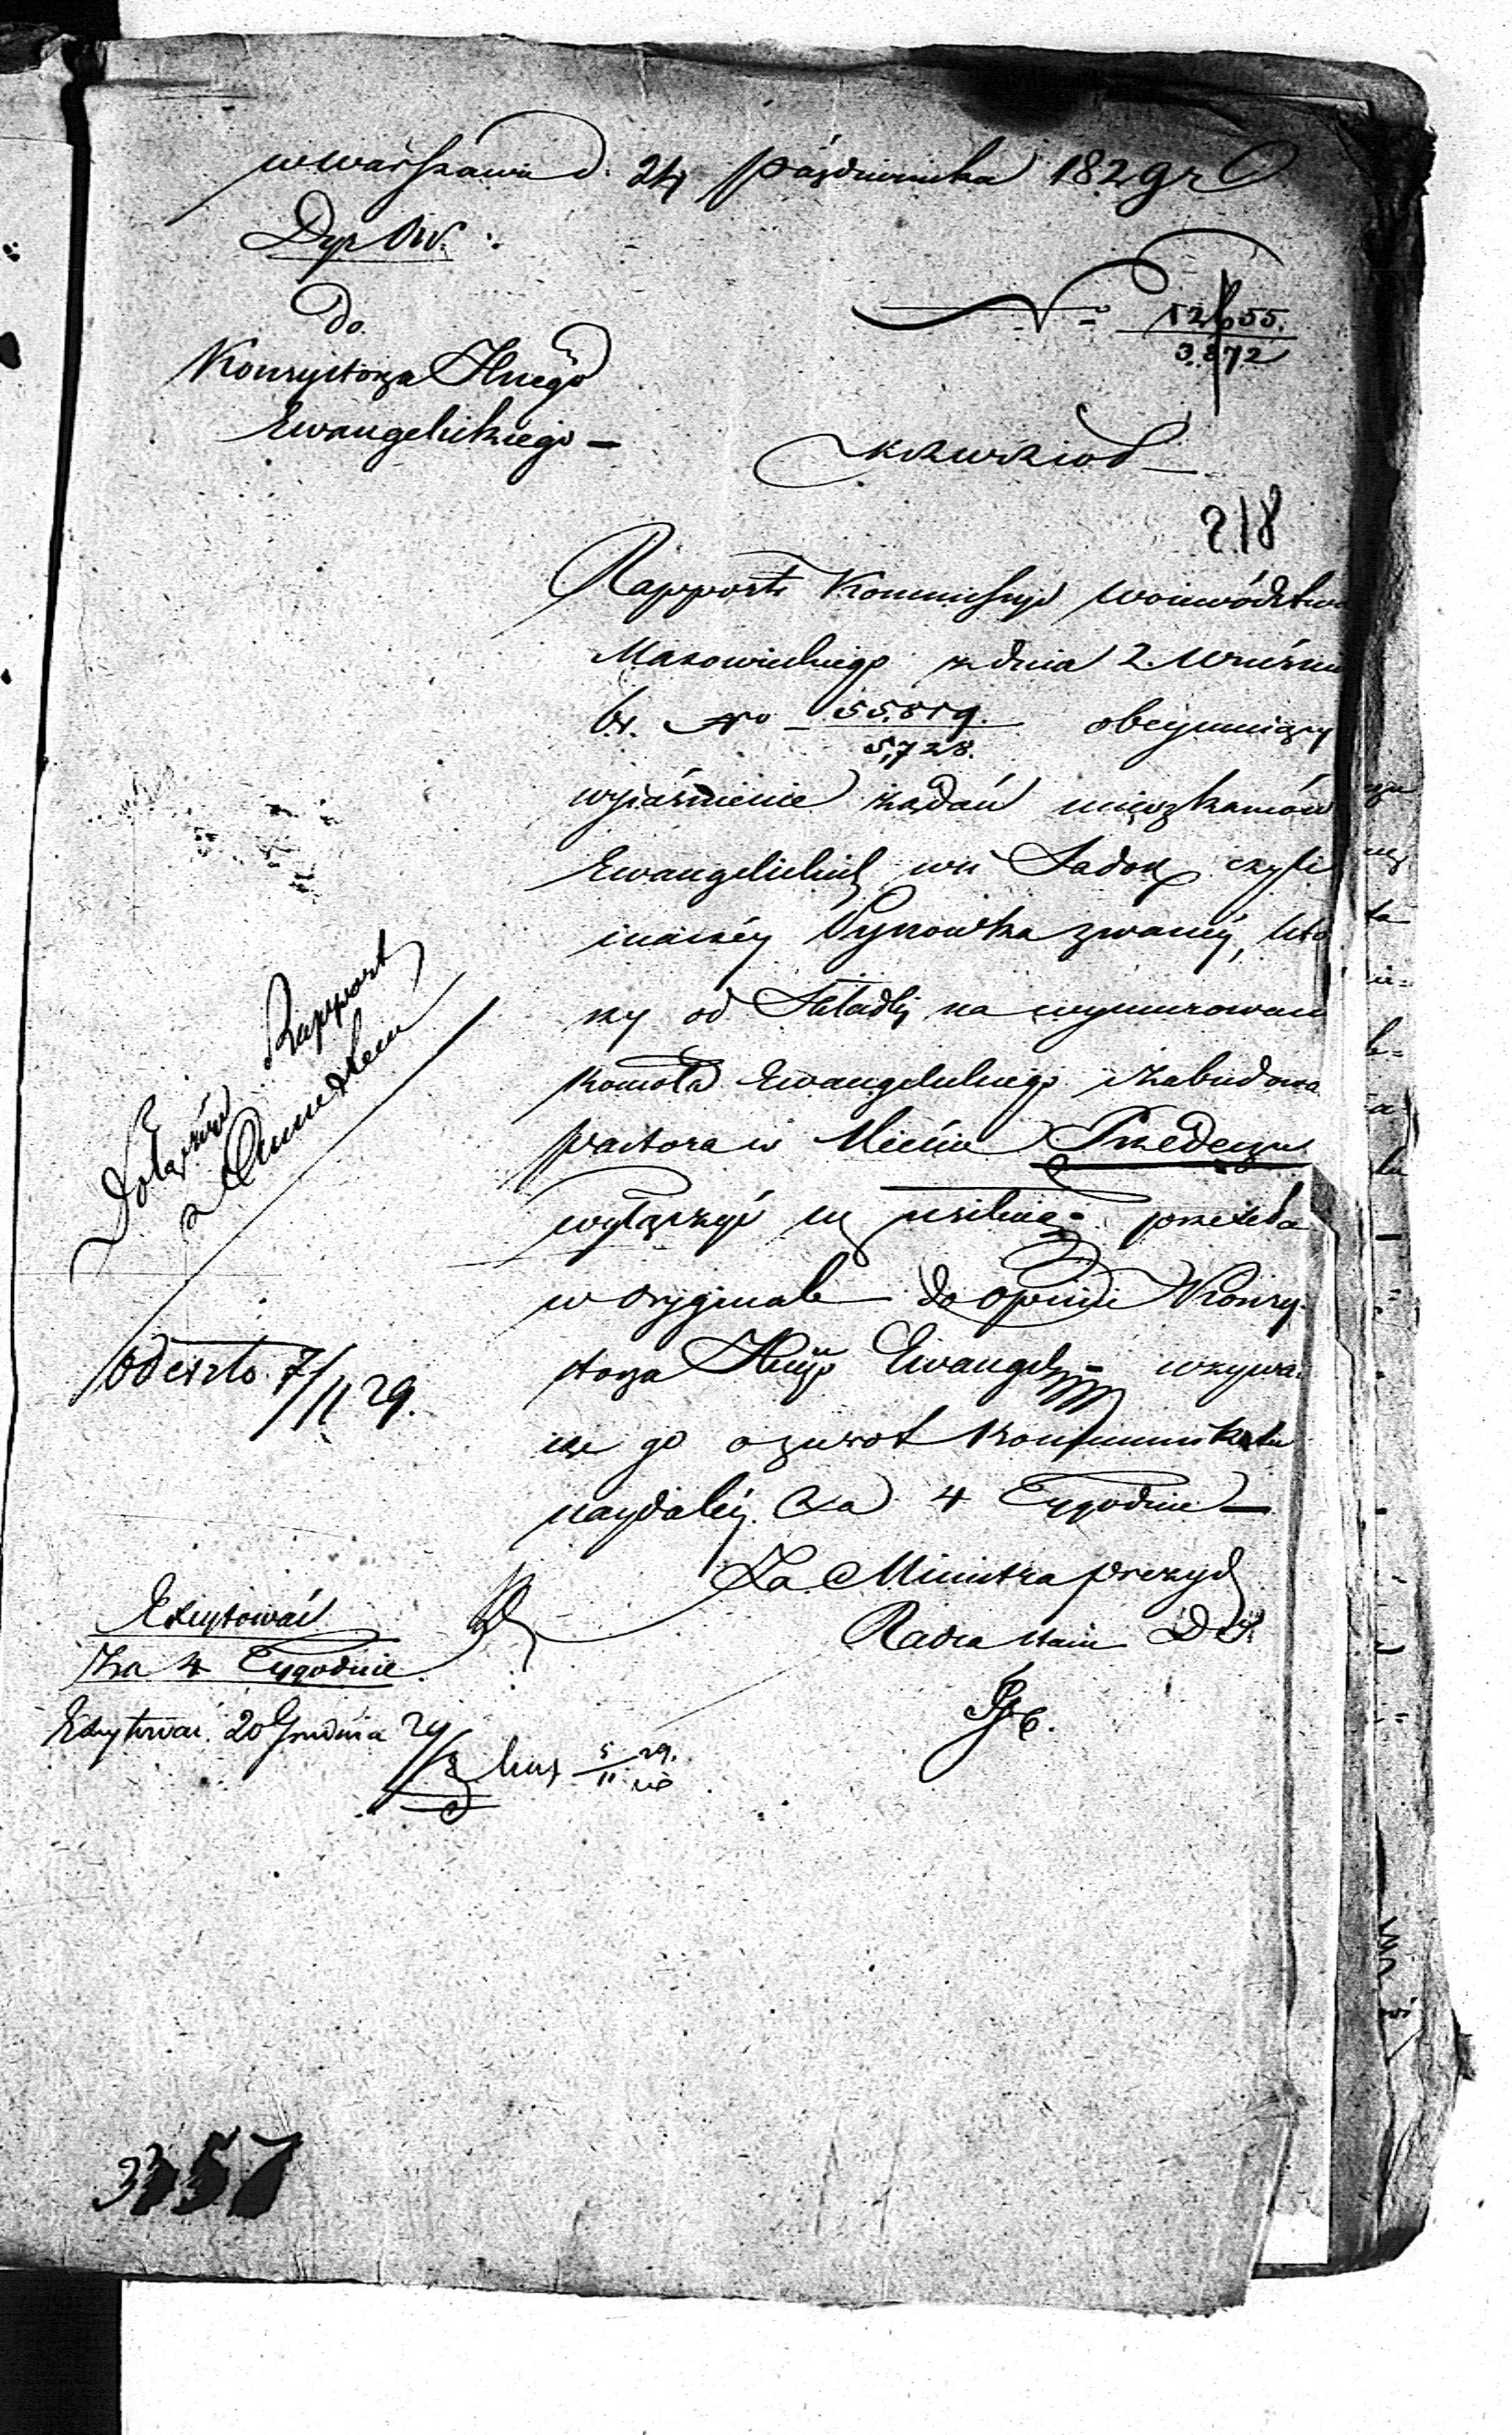 w Warszawie d. 24 Października 1829 r
Dyr. Ow.
Do
Konsystorza Jlnego
Ewangelickiego
N° 12655.
3.872
218
Rapport Kommissyi Woiewództwa
Mazowieckiego z dnia 2. Wrześnie
br. No 55.819. obeymuiący
5,728.
wyiaśnienie żądań mieszkańców
Ewangelickich wsi Sadok czyli
inaczéy zwanéy, któ
rzy od Składki na wymurowani
Kościoła Ewangelickiego i zabudowa
pastora w Mieście Przedeczu
wyłączyć się usiłuią przesyła
w oryginale do opinii Konsy-
storza Jlnego Ewangel. wzywa-
iąc go o zwrot kommunikatu
naydaléy za 4 Tygodnie
Za Ministra prezyd
Radca Stanu D. J.
Dołączyć Rapport
z Annexem
odeszło 7/11 29.
Excytować
za 4 Tygodnie
Excytować 20 Grudnia 29
5/11 29.
3357